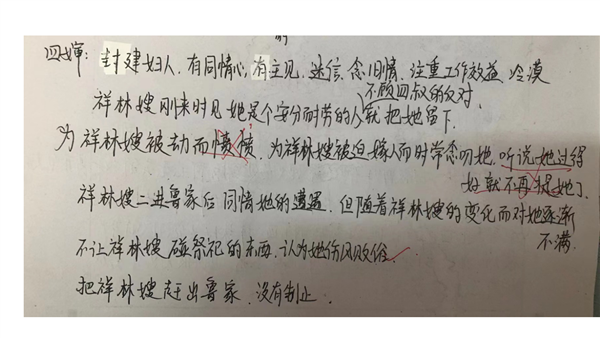 四婶：封建妇人，有同情心，有主见，迷信，念旧情，注重工作效益，冷漠
祥林嫂刚来时见她是个安分耐劳的人就把她留下.
不顾四叔的反对
为祥林嫂被劫而愤愤，为祥林嫂被迫嫁人而时常念叨她，听说她过得
好就不再提她了
祥林嫂二进鲁家后同情她的遭遇，但随着祥林嫂的变化而对她逐渐
不满.
不让祥林嫂碰祭祀的东西，认为她伤风败俗.
把祥林嫂赶出鲁家，没有制止.